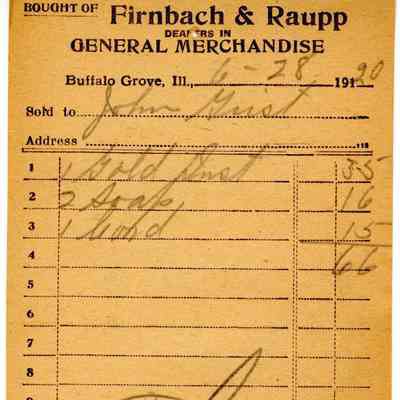 BOUGHT OF Firnbach & Raupp
DEALERS IN
GENERAL MERCHANDISE
Buffalo Grove, Ill., 6-28 1920
Sold to John Gust
Address
1 1 Gold Dust 35
2 2 Soap 16
3 1 15
4 66
5
6
7
8
9